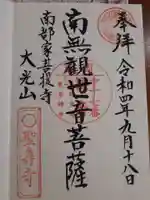 奉拝
令和四年九月十八日
南無観世音菩薩
南部家菩提寺
大光山
聖寿寺